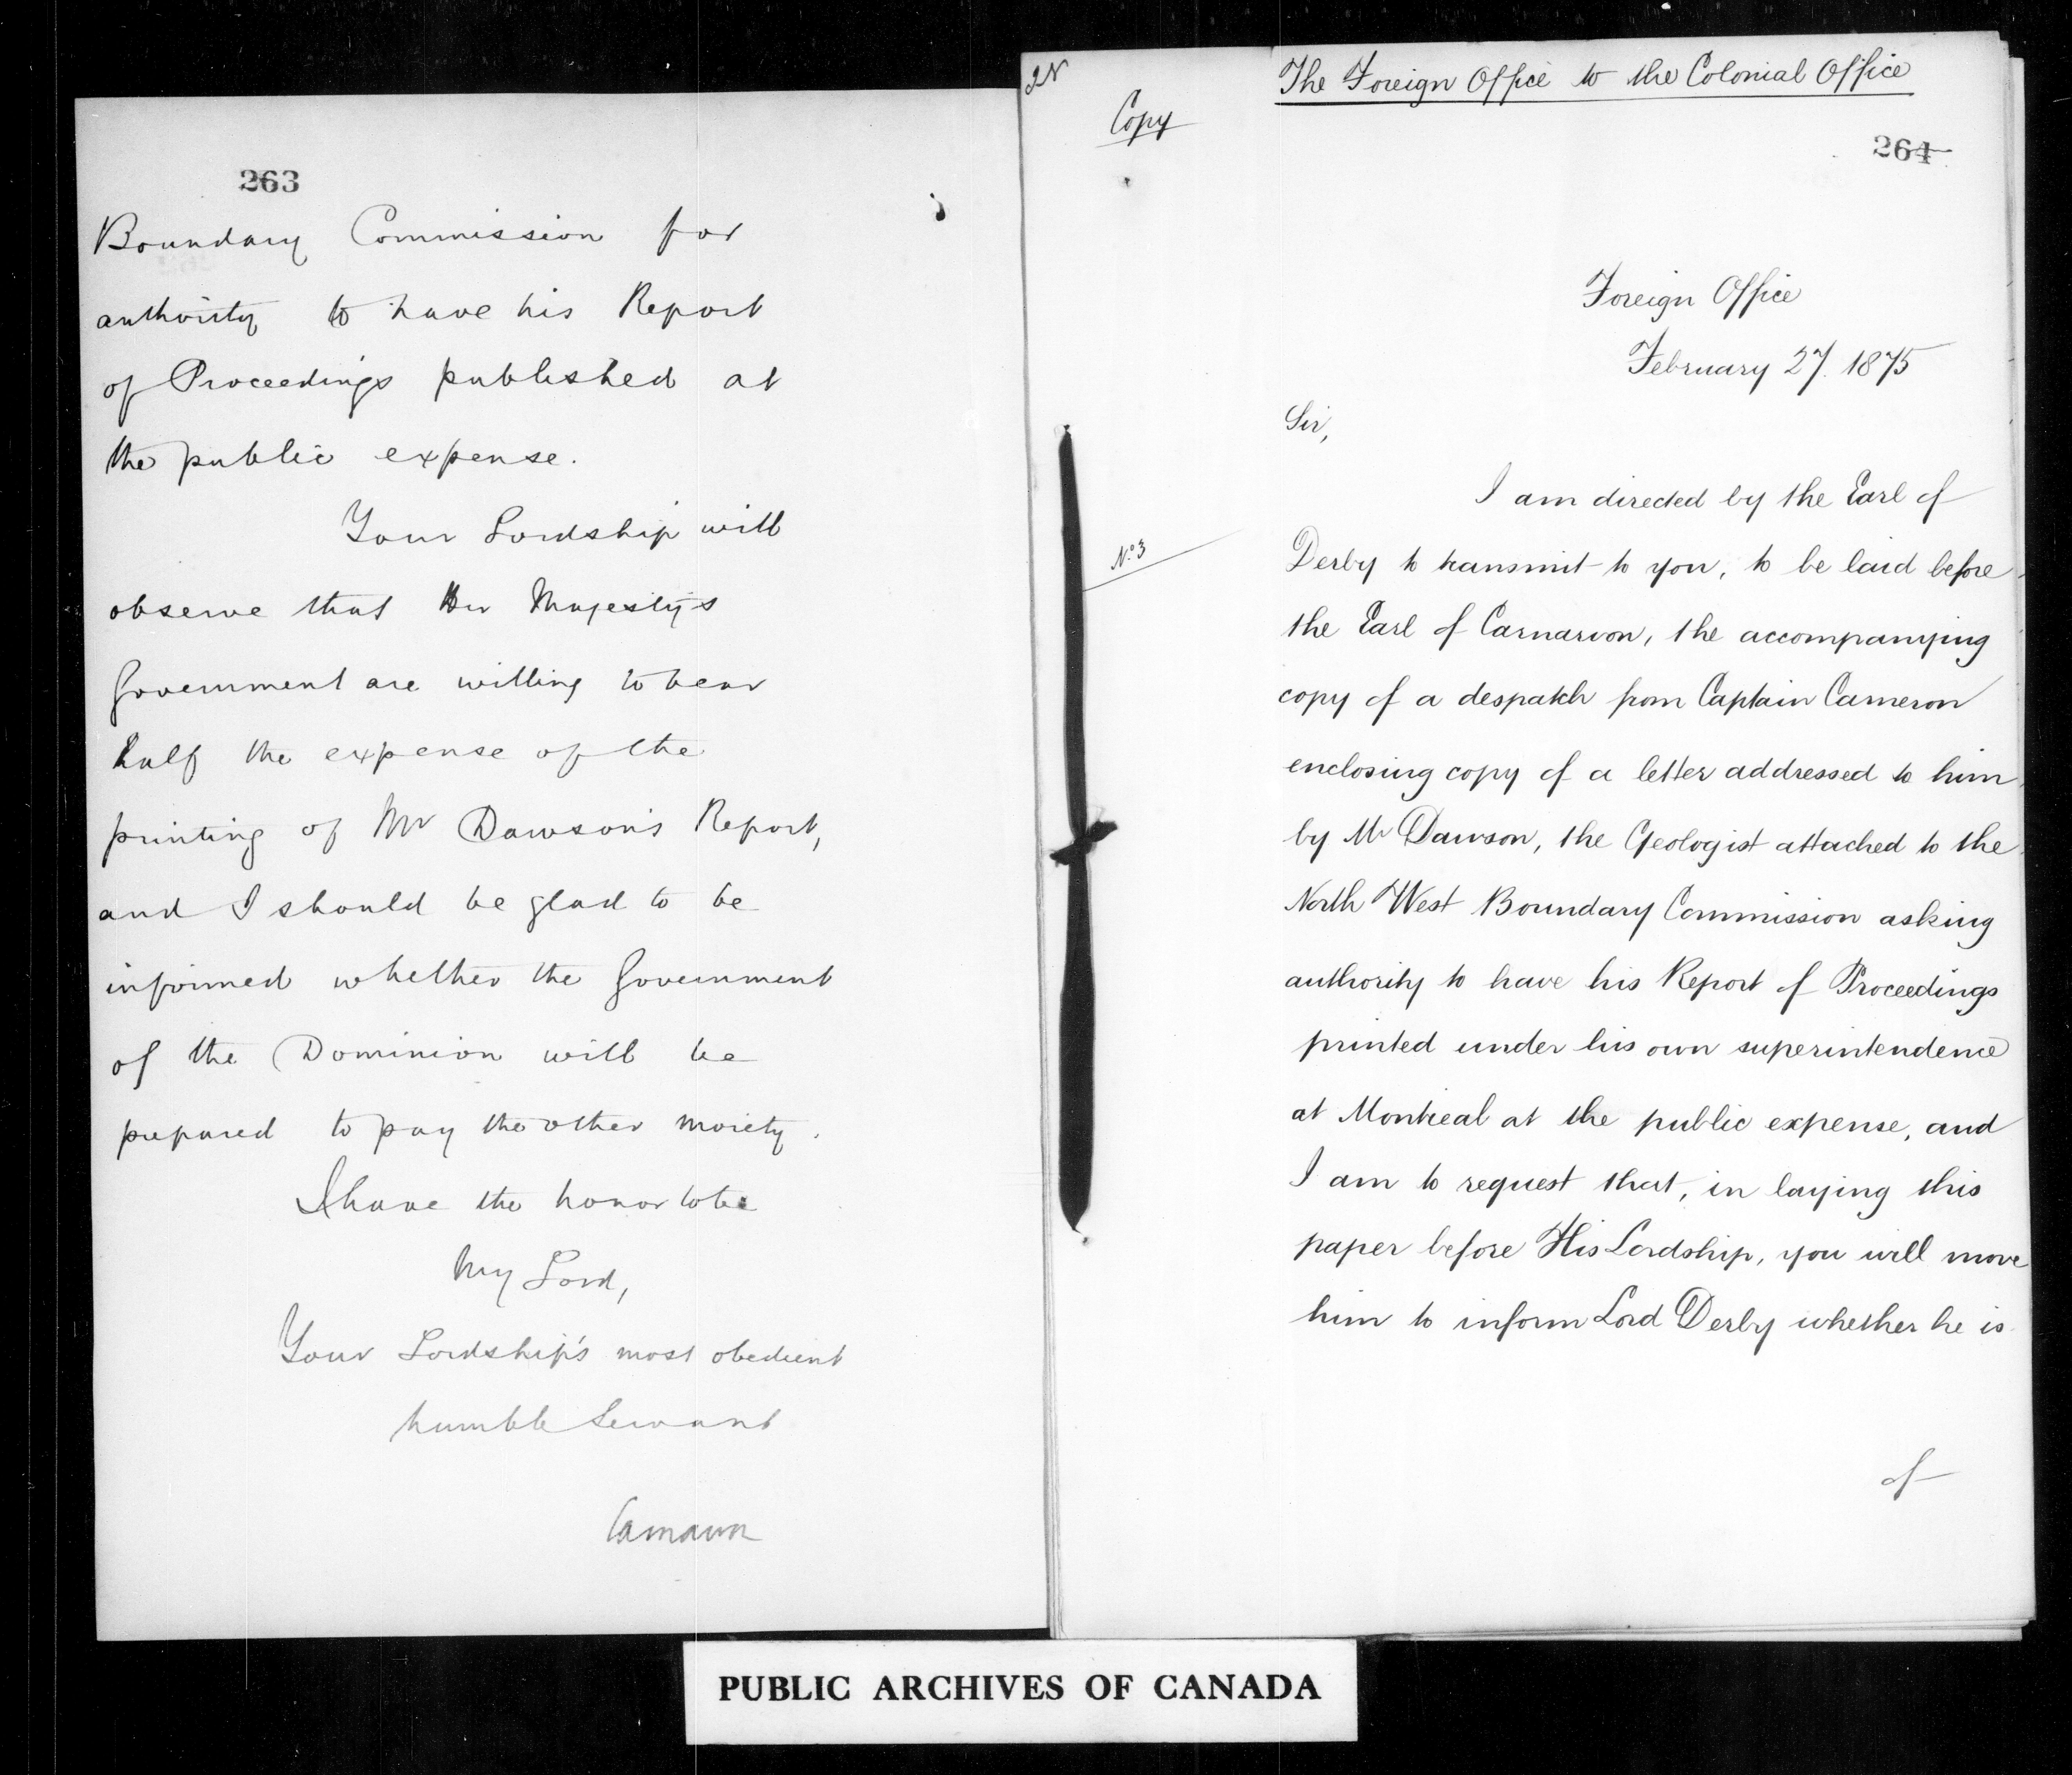 263
Boundary Commission for
authority to have his Report
of Proceedings published at
the public expense.
Your Lordship will
observe that Her Majesty's
Government are willing to bear
half the expense of the
printing of Mr Dawson's Report,
and I should be glad to be
informed whether the Government
of the Dominion will be
prepared to pay the other moiety.
I have the honor to be
My Lord,
Your Lordship's most obedient
humble Servant
Carnarvon
The Foreign Office to the Colonial Office
Copy
264
Foreign Office
February 27. 1875
Sir,
I am directed by the Earl of
No. 3
Derby to transmit to you, to be laid before
the Earl of Carnarvon, the accompanying
copy of a despatch from Captain Cameron
enclosing copy of a letter addressed to him
by Mr Dawson, the Geologist attached to the
North West Boundary Commission asking
authority to have his Report of Proceedings
printed under his own superintendence
at Montreal at the public expense, and
I am to request that, in laying this
paper before His Lordship, you will move
him to inform Lord Derby whether he is
of
PUBLIC ARCHIVES OF CANADA